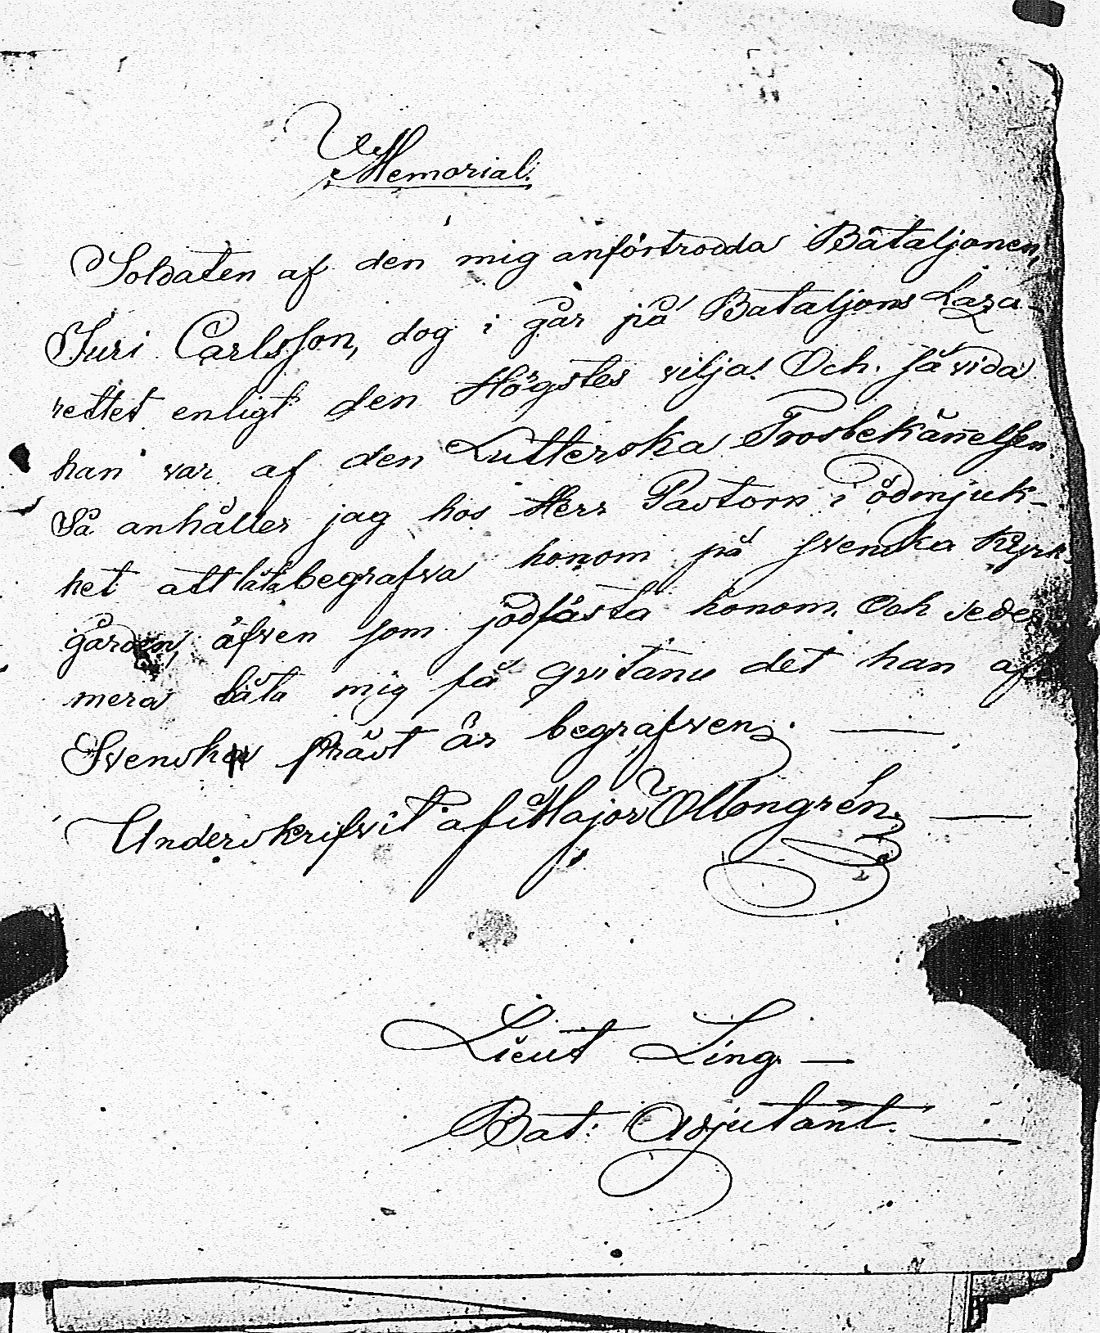 Memorial.
Soldaten af den mig anförtrodda Bataljonen,
Juri Carlsson, dog i går på Bataljons Laza-
rettet enligt den Högstes vilja! Och. så vida
han var af den Lutterska Trosbekännelsen
Så anhåller jag hos Herr Pastorn i ödmjuk-
het att låta begrafva honom på svenska Kyrk
gården, äfven som jodfästa honom. Och seder
mera låta mig få qvitanu det han af
Svenska präst är begrafven.
Underskrifvit af Major Ollongrén,
Lieut Ling
Bat: Adjutant.